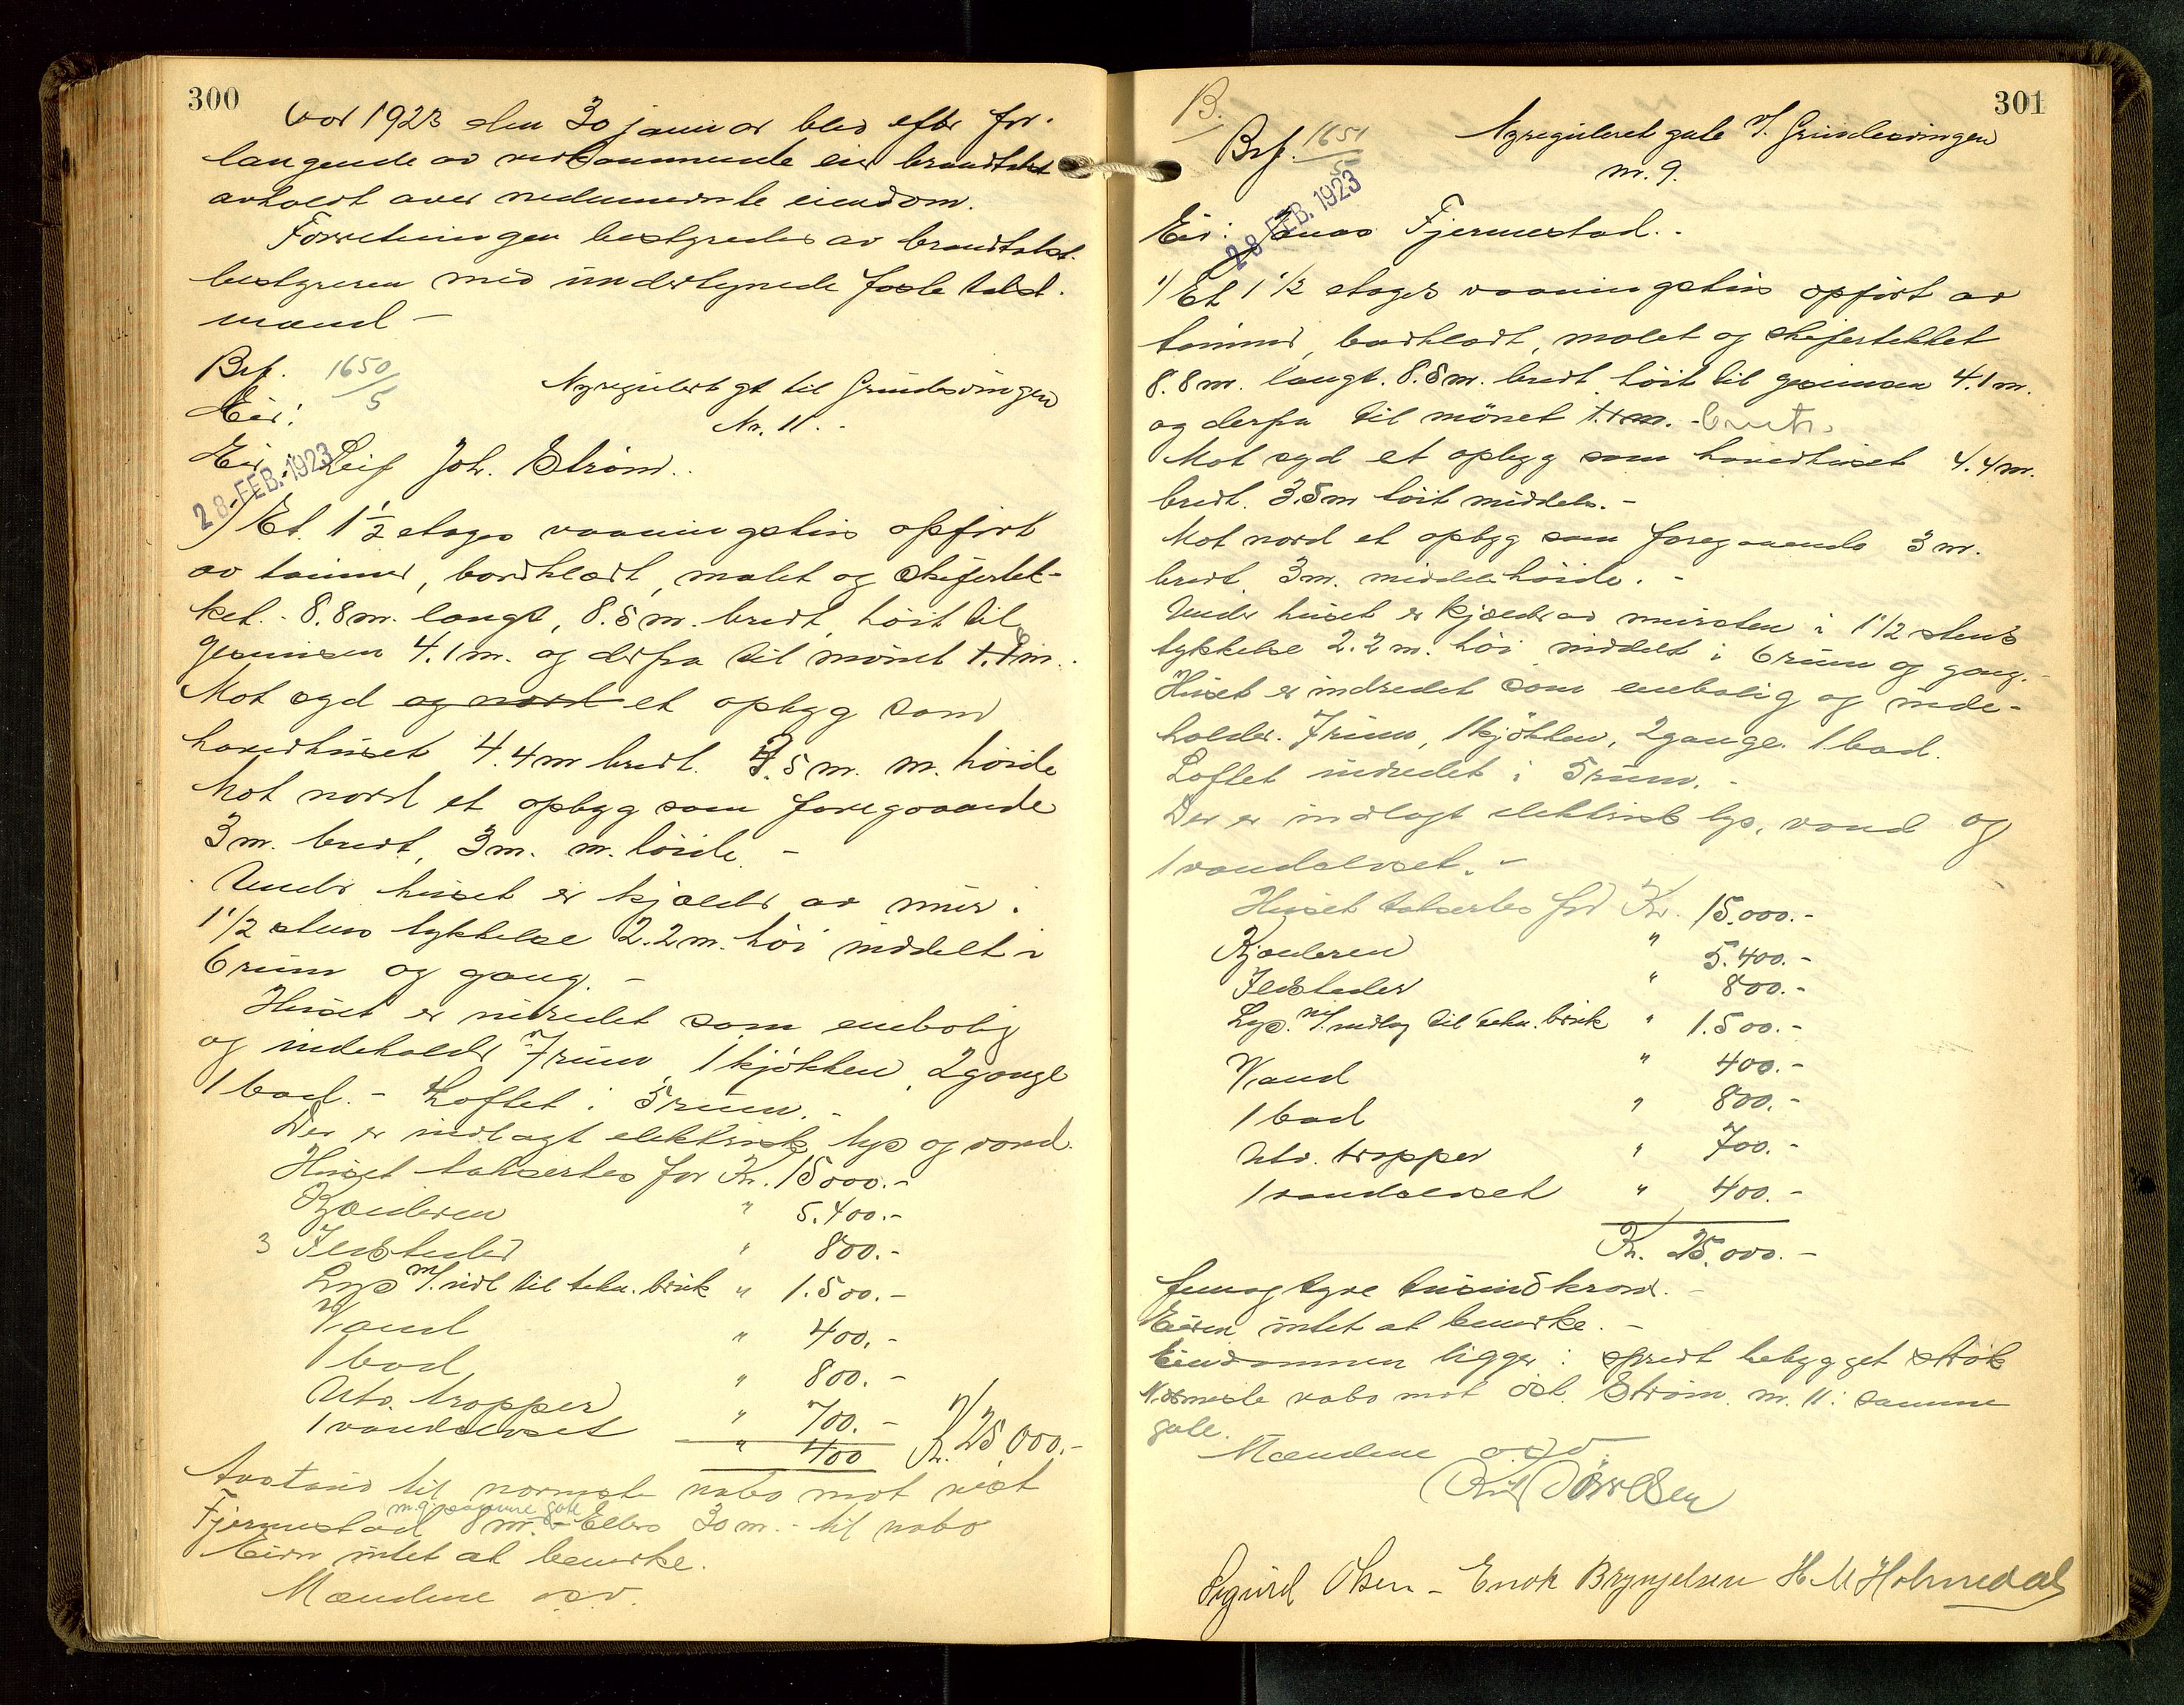 300
Aar 1923 den 30 januar blev efter for-
langende av vedkommende eier brandtakst
avholdt over nedennevnte eiendom.
Forretningen bestyredes av brandtakst-
bestyreren med undertegnede faste takst-
mænd -
Brf. 1650/5 Nyregulert gt til Grundesvingen
Eier: Nr. 11. -
Eier: Leif Joh. Strøm.
28 FEB. 1923
1) Et 1 1/2 etages vaaningshus opført
av tømmer, bordklædt, malet og skifertek-
ket. 8.8 m. langt, 8.5 m. bredt, høit til
gesimsen 4.1 m. og derfra til mønet m.
Mot syd og nord et opbygg som
hovedhuset 4.4 m bredt. 3.5 m. m. høide
Mot nord et opbygg som foregaaende
3 m. bredt, 3 m. m. høide -
Under huset er kjælder av mur i
1 1/2 stens tykkelse 2.2 m. høi inddelt i
6 rum og gang. -
Huset er indredet som enebolig
og indeholder 7 rum, 1 kjøkken, 2 gange
1 bad. - Loftet i 5 rum. -
Der er indlagt elektrisk lys og vand.
Huset takseres for Kr. 15000.-
Kjælderen " 5.400.-
3 Ildsteder " 800.-
Lys m/. indl til tekn. bruk " 1.500.-
Vand " 400.-
1 bad " 800.-
Utv. trapper " 700.-
1 vandclosset " 400 Kr. 25000.-
Avstand til nærmeste nabo mot vest
m. 9 samme gate
Fjermestad 8 m. - Ellers 30 m. - til nabo
Eieren intet at bemerke.
Mændene o.s.v.
301
B.
Brf. 1651/5 Nyreguleret gate v/. Grundesvingen
nr. 9.
28 FEB. 1923
Eier: Jonas Fjermestad. -
1) Et 1 1/2 etages vaaningshus opført av
tømmer, bordklædt, malet og skifertekket
8.8 m. langt. 8.5 m. bredt høit til gesimsen 4.1 m.
og derfra til mønet m. -
Mot syd et opbygg som hovedhuset 4.4 m.
bredt. 3.5 m høit middels. -
Mot nord et opbygg som foregaaende 3 m.
bredt, 3 m. middelshøide. -
Under huset er kjælder av mursten i 1 1/2 stens
tykkelse 2.2 m. høi inddelt i 6 rum og gang. -
Huset er indredet som enebolig og inde-
holder. 7 rum, 1 kjøkken, 2 gange. 1 bad.
Loftet indredet i 5 rum. -
Der er indlagt elektrisk lys, vand og
1 vandclosset. -
Huset takseres for Kr. 15.000.-
Kjælderen " 5.400.-
Ildsteder " 800.-
Lys. m/. indlag til tekn. bruk " 1.500.-
Vand " 400.-
1 bad " 800.-
Utv. trapper " 700.-
1 vandclosset " 400.-
Kr. 25.000.-
femogtyve tusind kroner. -
Eieren intet at bemerke. -
Eiendommen ligger i spredt bebygget strøk
Nærmeste nabo mot øst. Strøm nr. 11 i samme
gate.
Mændene o.s.v.
Sigurd Olsen - Enok Brynjelsen H M Holmedal